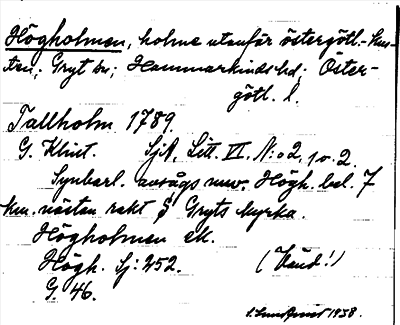 Högholmen, holme utanför östergötl.-kus-
ten; Gryt sn; Hammarkinds hd; Öster-
götl. l.
Tallholm 1789.
G. Klint. SjA, Litt. VI. N:o 2, 1 o. 2.
Synbarl. avsågs nuv. Högh. bel. 7
km. nästan rakt S Gryts kyrka.
Högholmen EK.
Högh. Sj: 252. (Känd!)
G. 46.
1938.